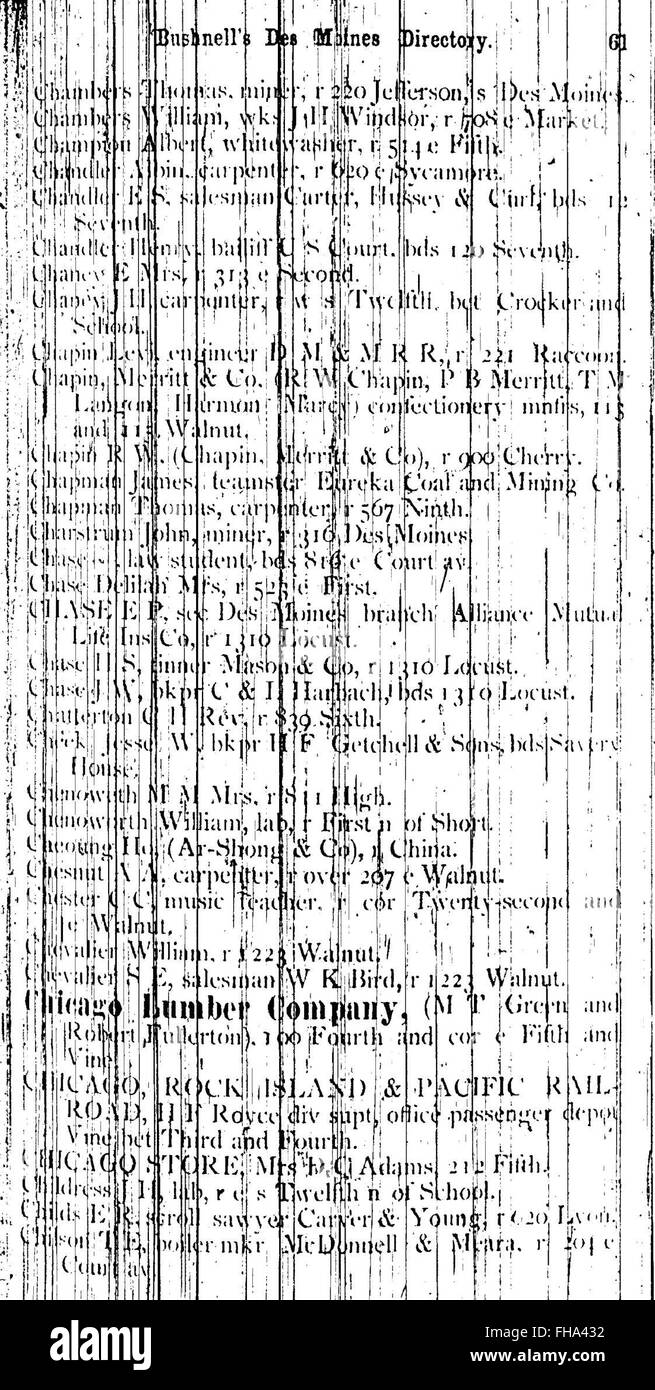 Bushnell's Des Moines Directory. 61
Chambers Thomas, miner, r 220 Jefferson, s Des Moines.
Chambers William, wks J H Windsor, r 708 e Market.
Champion Albert, whitewasher, r 514 e Fifth.
Chandler Albin, carpenter, r 620 e Sycamore.
Chandler E S, salesman Carter, Hussey & Curl, bds 12
Seventh.
Chandler Henry, bailiff U S Court, bds 120 Seventh.
Chaney E Mrs, r 313 e Second.
Chaney J H, carpenter, r w s Twelfth, bet Crocker and
School.
Chapin Levi, engineer D M & M R R, r 221 Raccoon.
Chapin, Merritt & Co, (R W Chapin, P B Merritt, T M
Langon, Harmon Marcy) confectionery mnfrs, 113
and 115 Walnut.
Chapin R W, (Chapin, Merritt & Co), r 900 Cherry.
Chapman James, teamster Eureka Coal and Mining Co.
Chapman Thomas, carpenter, r 567 Ninth.
Charstrum John, miner, r 316 Des Moines.
Chase law student, bds 816 e Court av.
Chase Delilah Mrs, r 523 e First.
CHASE E P, sec Des Moines branch Alliance Mutual
Life Ins Co, r 1310 Locust.
Chase H S, tinner Mason & Co, r 1310 Locust.
Chase J W, bkpr C & L Harbach, bds 1310 Locust.
Chatterton C H Rev, r 839 Sixth.
Cheek Jesse W, bkpr H F Getchell & Sons, bds Savery
House.
Chenoweth M M Mrs, r 811 High.
Chenoworth William, lab, r First n of Short.
Cheoung Ho, (Ar-Shong & Co), r China.
Chesnut A A, carpenter, r over 207 e Walnut.
Chester C C, music teacher, r cor Twenty-second and
e Walnut.
Chevalier William, r 1223 Walnut.
Chevalier S E, salesman W K Bird, r 1223 Walnut.
Chicago Lumber Company, (M T Green and
Robert Fullerton), 100 Fourth and cor e Fifth and
Vine.
CHICAGO, ROCK ISLAND & PACIFIC RAIL-
ROAD, H F Royce div supt, office passenger depot
Vine bet Third and Fourth.
CHICAGO STORE, Mrs D C Adams, 212 Fifth.
Childress J H, lab, r e s Twelfth n of School.
Childs E R, scroll sawyer Carver & Young, r 620 Lyon.
Chilson T E, boiler mkr McDonnell & Meara, r 204 e
Court av.
alamy
Image ID: FHA432
www.alamy.com